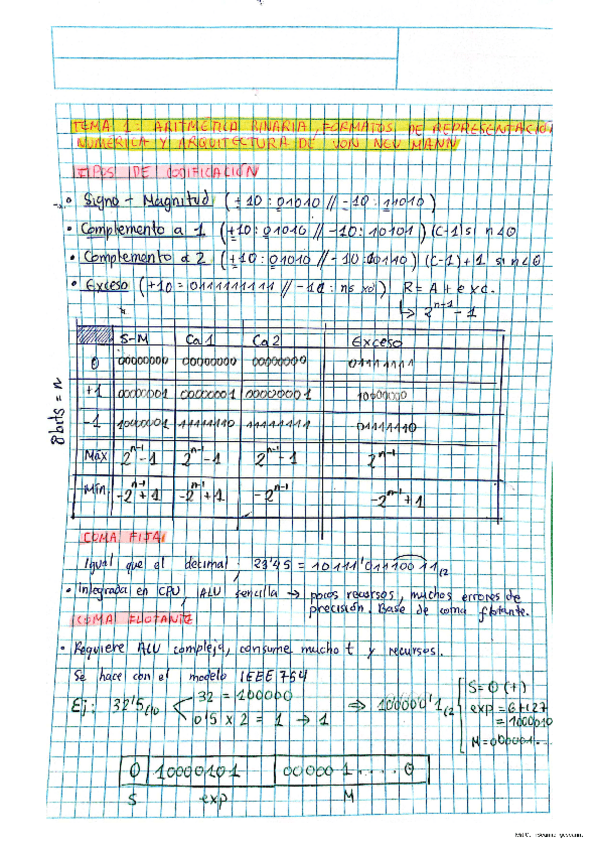 TEMA 1: ARITMÉTICA BINARIA, FORMATOS DE REPRESENTACIO
NUMÉRICA Y ARQUITECTURA DE VON NEUMANN
TIPOS DE CODIFICACIÓN
• Signo - Magnitud (+10 : 01010 // -10 : 11010)
• Complemento a 1 (+10 : 01010 // -10 : 10101) (C-1) si n<0
• Complemento a 2 (+10 : 01010 // -10 : 10110) (C-1)+1 si n<0
• Exceso (+10 = 0111111111 // -10 : ) R = A + exc.
↳ 2^(n-1) - 1
S-M Ca1 Ca2 Exceso
0 00000000 00000000 00000000 01111111
+1 00000001 00000001 00000001 10000000
-1 10000001 11111110 11111111 01111110
Máx 2^(n-1) - 1 2^(n-1) - 1 2^(n-1) - 1 2^(n-1)
Mín. -2^(n-1) + 1 -2^(n-1) + 1 -2^(n-1) -2^(n-1) + 1
8 bits = n
COMA FIJA
Igual que el decimal : 23'45 = 10111'01110011(2
• Integrada en CPU, ALU sencilla → pocos recursos, muchos errores de
precisión. Base de coma flotante.
COMA FLOTANTE
• Requiere ALU compleja, consume mucho t y recursos.
Se hace con el modelo IEEE 754
Ej: 32'5(10 32 = 100000 ⇒ 100000'1(2
0'5 x 2 = 1 → 1
S = 0 (+)
exp = 6+127
= 1000010
M = 000001...
0 10000101 000001....0
S exp M